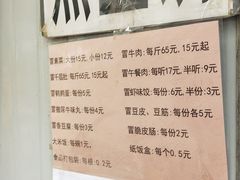 冒素菜:大份15元,小份12元
冒千层肚:每斤65元,15元起
冒鹌鹑蛋:每份5元
冒撒尿牛肉丸:每份4元
冒香豆腐:每份3元
大米饭:每碗1元
食品打包袋:每根0.2元
冒牛肉:每斤65元,15元起
冒午餐肉:每听17元,半听:9元
冒虾味饺:每份:6元,半份:3元
冒豆皮、豆筋:每份各5元
冒脆皮肠:每份2元
纸饭盒:每个0.5元